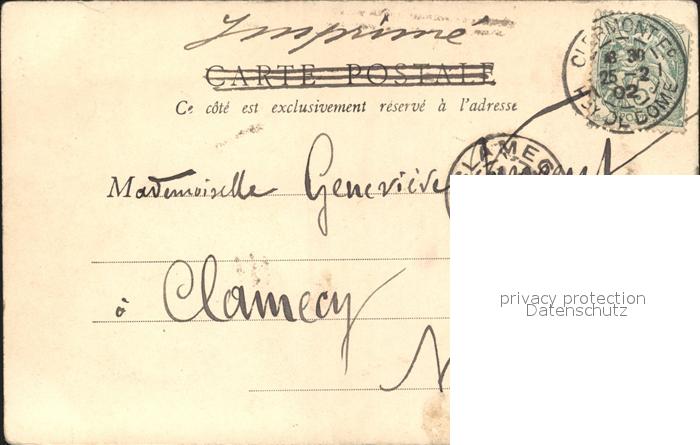 Imprimé
CARTE POSTALE
Ce côté est exclusivement réservé à l'adresse
CLERMONT-FD
18 30
25 - 2
02
PUY DE DOME
Mademoiselle Geneviève
CLAMECY
à Clamecy
N
privacy protection
Datenschutz